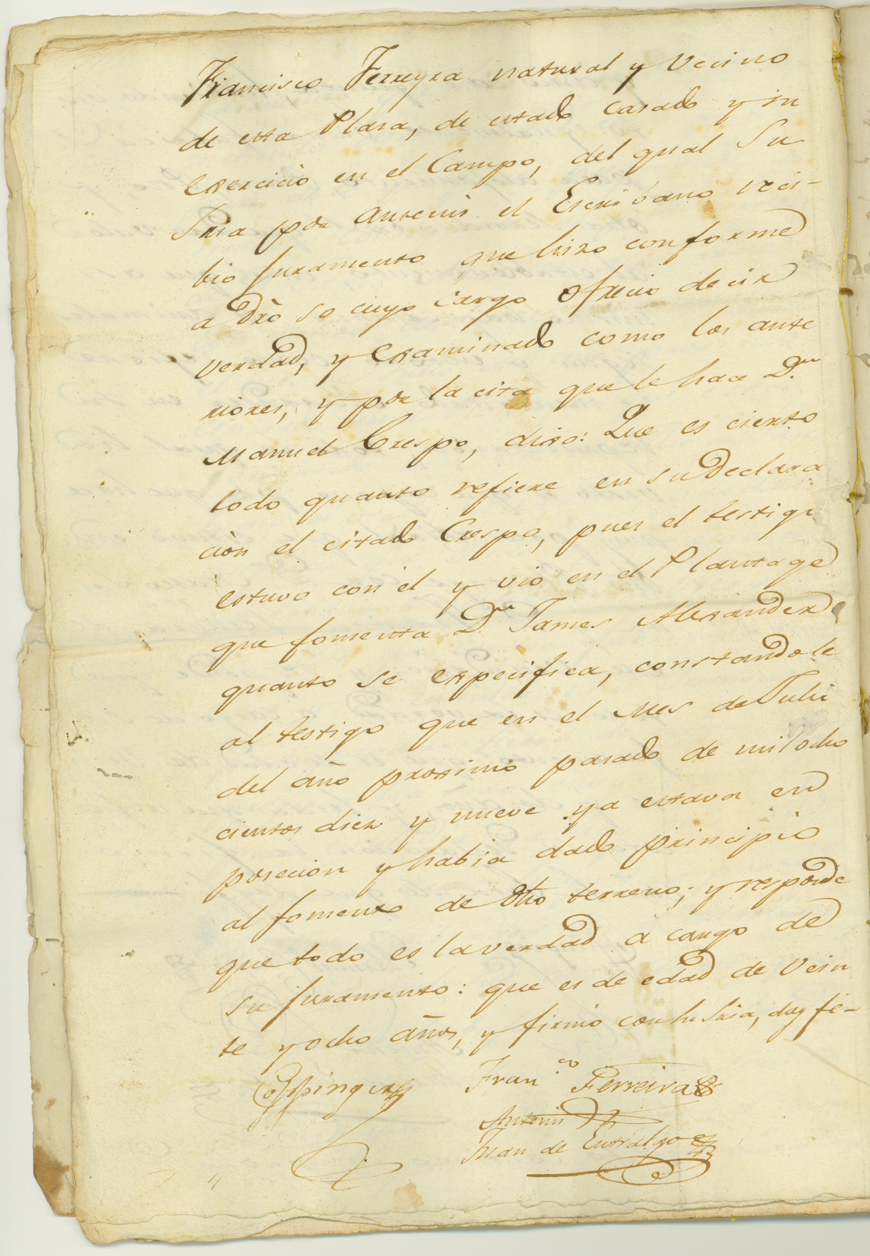 Francisco Ferreyra natural y vecino
de esta Plasa, de estado casado y su
exercicio en el Campo, del qual Su
Sria por antemi el Escribano reci-
bio juramento que hiso conforme
a dro so cuyo cargo ofrecio decir
verdad, y examinado como los ante
riores, y por la cita que le hace Dn
Manuel Crespo, dixo: Que es cierto
todo quanto refiere en su declara
cion el citado Crespo, pues el testigo
estuvo con el y vio en el Plantage
que fomenta Dn James Alexander
quanto se especifica, constandole
al testigo que en el Mes de Julio
del año proximo pasado de mil ocho
cientos diez y nueve ya estava en
posecion y habia dado principio
al fomento de dho terreno; y responde
que todo es la verdad a cargo de
su juramento: que es de edad de vein
te y ocho años, y firmó con Su Sria, doy fe-
Coppinger Franco Ferreira
Antemi
Juan de Entralgo